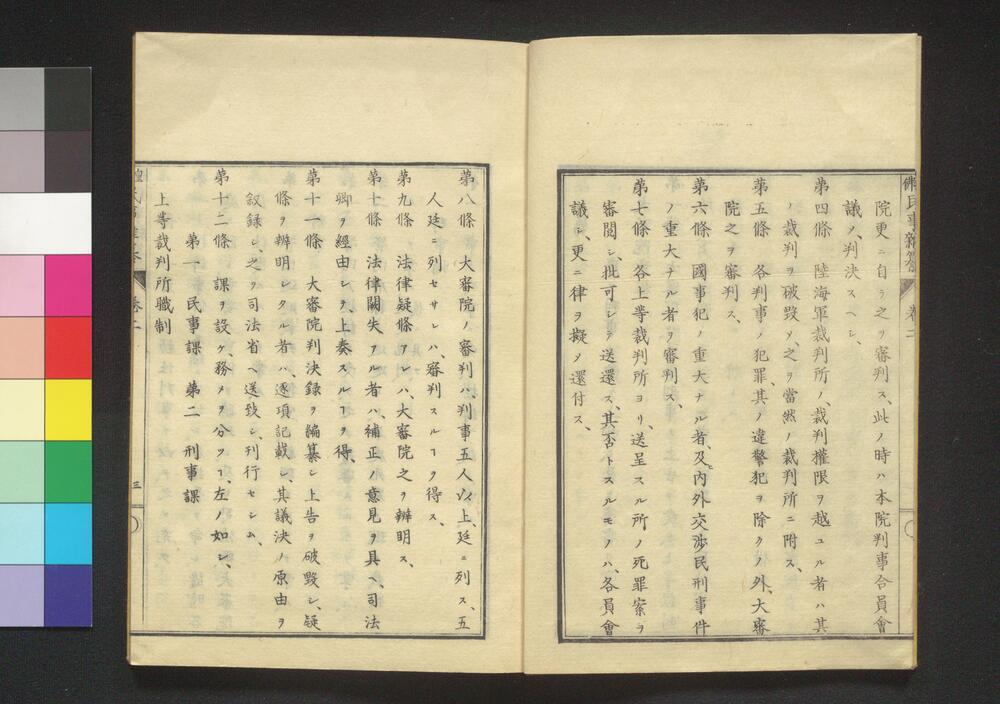 佛民事雜答 卷二
院更ニ自ラ之ヲ審判ス、此ノ時ハ本院判事合員會
議ノ、判決スヘシ、
第四條　陸海軍裁判所ノ、裁判權限ヲ越ユル者ハ其
ノ裁判ヲ破毀メ、之ヲ當然ノ裁判所ニ附ス、
第五條　各判事ノ犯罪、其ノ違警犯ヲ除クノ外、大審
院之ヲ審判ス、
第六條　國事犯ノ重大ナル者、及ヒ內外交涉民刑事件
ノ重大ナル者ヲ審判ス、
第七條　各上等裁判所ヨリ、送呈スル所ノ死罪案ヲ
審閱シ、批可シテ送還ス、其否トスルモノハ、各員會
議シ、更ニ律ヲ擬メ還付ス、
第八條　大審院ノ審判ハ、判事五人以上、廷ニ列ス、五
人廷ニ列セサレハ審判スルヿヲ得ス、
第九條　法律疑條アレハ、大審院之ヲ辨明ス、
第十條　法律闕失アル者ハ、補正ノ意見ヲ具ヘ司法
卿ヲ經由シテ、上奏スルヿヲ得、
第十一條　大審院判決録ヲ編纂シ上告ヲ破毀シ、疑
條ヲ辨明シタル者ハ、逐項記載シ、其議決ノ原由ヲ
叙録シ、之ヲ司法省ヘ送致シ、刋行セシム、
第十二條　課ヲ設ケ、務メヲ分ツヿ、左ノ如シ、
第一　民事課　第二　刑事課
上等裁判所職制
卷二
三